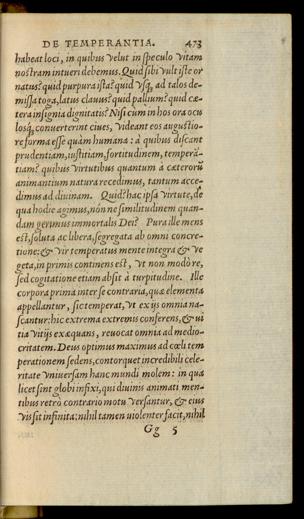 DE TEMPERANTIA. 473
habeat loci, in quibus velut in ſpeculo vitam
nostram intueri debemus. Quid ſibi vult iſte or
natus? quid purpura iſta? quid vſq́; ad talos de-
miſſa toga, latus clauus? quid pallium? quid cæ-
tera inſignia dignitatis? Niſi cum in hos ora ocu
loſq́; conuerterint ciues, videant eos auguſtio-
re forma eſſe quàm humana: à quibus diſcant
prudentiam, iuſtitiam, fortitudinem, temperā-
tiam? quibus virtutibus quantum à cæterorū
animantium natura recedimus, tantum acce-
dimus ad diuinam. Quid? hac ipſa virtute, de
qua hodie agimus, nónne ſimilitudinem quan-
dam gerimus immortalis Dei? Pura ille mens
est, ſoluta ac libera, ſegregata ab omni concre-
tione: & vir temperatus mente integra & ve
geta, in primis continens eſt, vt non modò re,
ſed cogitatione etiam abſit à turpitudine. Ille
corpora prima inter ſe contraria, quæ elementa
appellantur, ſic temperat, vt ex ijs omnia na-
ſcantur: hic extrema extremis conferens, & vi
tia vitijs exæquans, reuocat omnia ad medio-
critatem. Deus optimus maximus ad cœli tem
perationem ſedens, contorquet incredibili cele-
ritate vniuerſam hanc mundi molem: in qua
licet ſint globi infixi, qui diuinis animati men-
tibus retrò contrario motu verſantur, & eius
vis ſit infinita: nihil tamen violenter facit, nihil
Gg 5